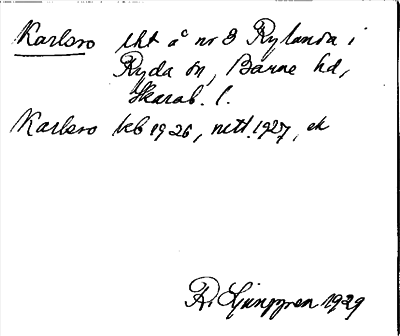 Karlsro lht å nr 3 Rylanda i
Ryda sn, Barne hd,
Skarab. l.
Karlsro beb 1926, nettl. 1927, ek
Fr. Ljunggren 1929